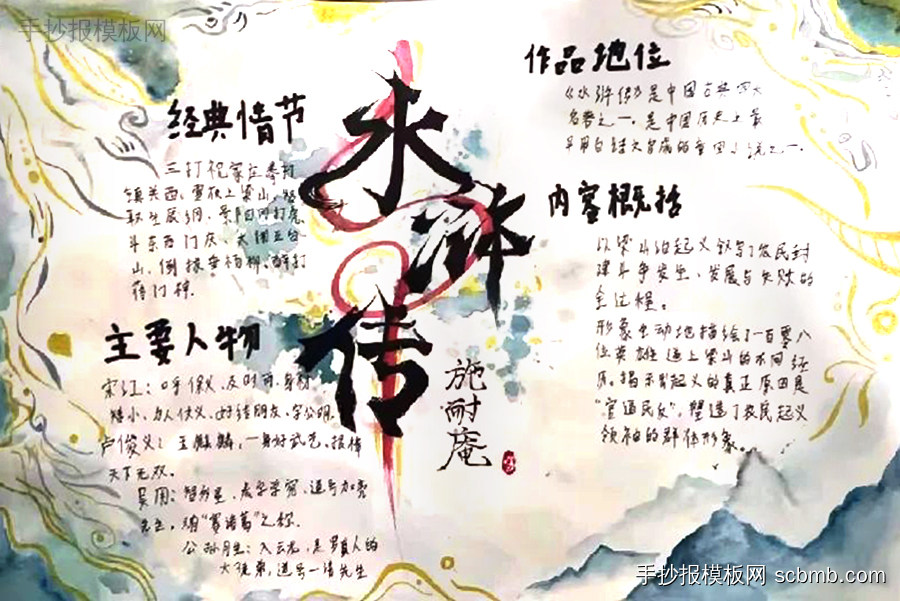 手抄报模板网
水浒传
施耐庵
经典情节
三打祝家庄拳打
镇关西、雪夜上梁山、智
取生辰纲、景阳冈打虎
斗杀西门庆、大闹五台
山、倒拔垂杨柳、醉打
蒋门神
主要人物
宋江：呼保义、及时雨、身材
矮小、为人仗义、好结朋友、字公明
卢俊义：玉麒麟，一身好武艺、棍棒
天下无双。
吴用：智多星、道号加亮
先生，"赛诸葛"之称
公孙胜：入云龙，是罗真人的
大徒弟，道号一清先生
作品地位
《水浒传》是中国古典四大
名著之一，是中国历史上最
早用白话文写成的章回小说之一.
内容概括
以梁山泊起义叙写了农民封
建斗争发生、发展与失败的
全过程。
形象生动地描绘了一百零八
位英雄逼上梁山的不同经
历。揭示出起义的真正原因是
"官逼民反"，塑造了农民起义
领袖的群体形象
手抄报模板网 scbmb.com